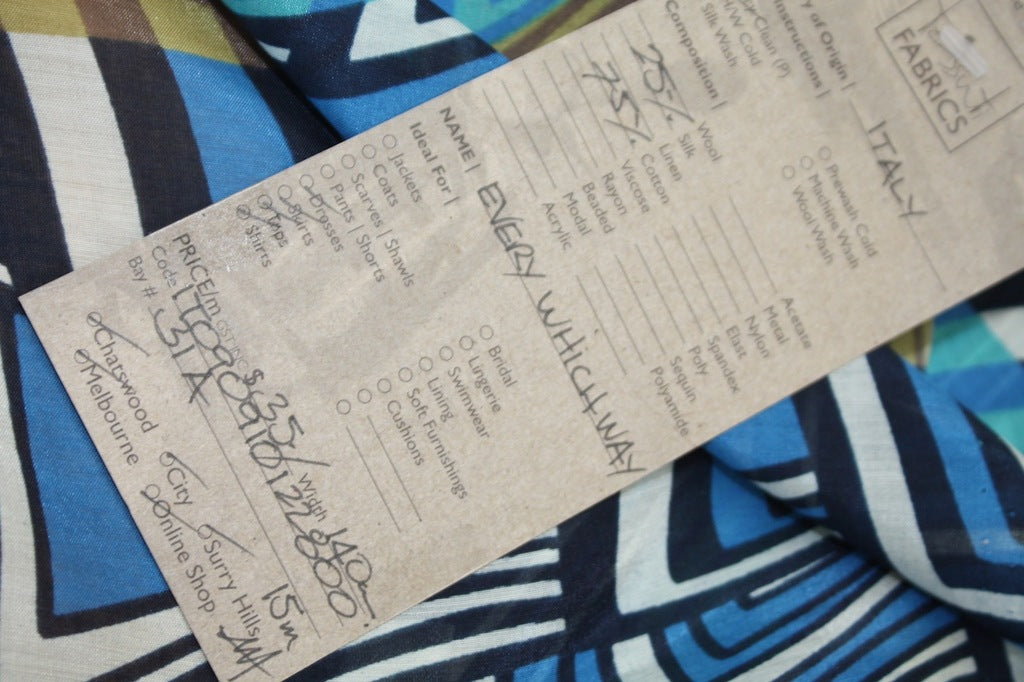 FABRICS
y of Origin | ITALY
nstructions |
Clean (P)
Prewash Cold
H/W Cold
Machine Wash
Silk Wash
Wool Wash
Composition |
Wool
Acetate
25% Silk
Metal
Linen
Nylon
75% Cotton
Elast
Viscose
Spandex
Rayon
Poly
Beaded
Sequin
Modal
Polyamide
Acrylic
NAME | EVERY WHICH WAY
Ideal For |
Jackets
Bridal
Coats
Lingerie
Scarves | Shawls
Swimwear
Pants | Shorts
Lining
Dresses
Soft Furnishings
Skirts
Cushions
Tops
Shirts
PRICE/m GST INC $35/ Width 140cm
Code
Bay # 31A 15m
Chatswood City Surry Hills
Melbourne Online Shop